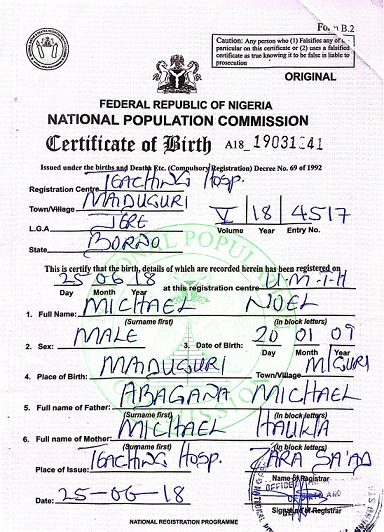 Form B.2
Caution: Any person who (1) Falsifies any of
particular on this certificate or (2) uses a falsified
certificate as true knowing it to be false is liable to
prosecution
ORIGINAL
FEDERAL REPUBLIC OF NIGERIA
NATIONAL POPULATION COMMISSION
Certificate of Birth A18_ 19031241
Issued under the births and Death Etc. (Compulsory Registration) Decree No. 69 of 1992
Registration Centre TEACHING HOSP.
Town/Village MAIDUGURI
L.G.A JERE
V 18 4517
Volume Year Entry No.
State BORNO
This is certify that the birth, details of which are recorded herein has been registered on
25 06 18 at this registration centre U.M.T.H
Day Month Year
1. Full Name: MICHAEL NOEL
(Surname first) (In block letters)
2. Sex: MALE 3. Date of Birth: 20 01 09
Day Month Year
4. Place of Birth: MAIDUGURI Town/Village M/GURI
5. Full name of Father: ABAGANA MICHAEL
(Surname first) (In block letters)
6. Full name of Mother: MICHAEL HAUWA
(Surname first) (In block letters)
Place of Issue: TEACHING HOSP. ZARA SA'AD
Name of Registrar
Date: 25-06-18
Signature of Registrar
NATIONAL REGISTRATION PROGRAMME